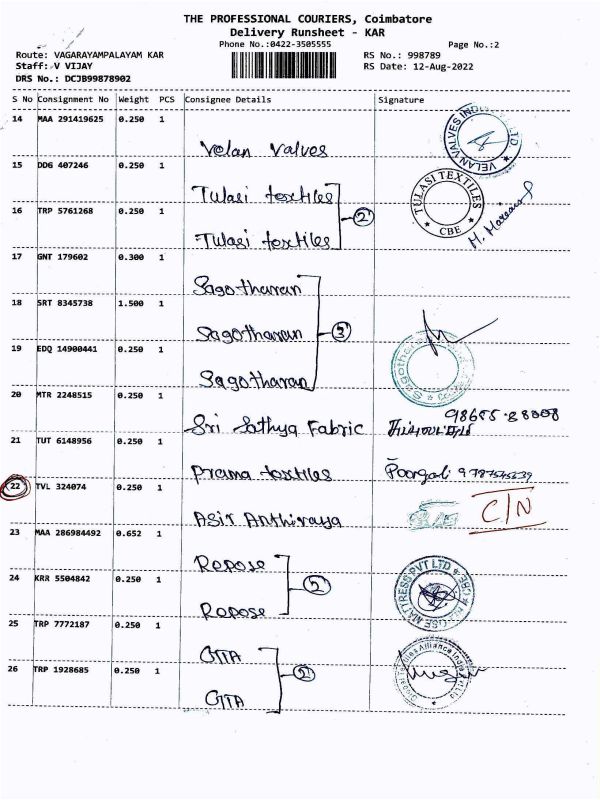 THE PROFESSIONAL COURIERS, Coimbatore
Delivery Runsheet - KAR
Phone No.:0422-3505555 Page No.:2
Route: VAGARAYAMPALAYAM KAR RS No.: 998789
Staff: V VIJAY RS Date: 12-Aug-2022
DRS No.: DCJB99878902
S No Consignment No Weight PCS Consignee Details Signature
14 MAA 291419625 0.250 1
Velan Valves
VELAN VALVES
15 DDG 407246 0.250 1
Tulasi textiles
TULASI TEXTILES
CBE
16 TRP 5761268 0.250 1
2
Tulasi textiles
17 GNT 179602 0.300 1
Sagotharan
18 SRT 8345738 1.500 1
Sagotharan 3
19 EDQ 14900441 0.250 1
Sagotharan
20 MTR 2248515 0.250 1
Sri Sathya Fabric
21 TUT 6148956 0.250 1
Prama textiles
22 TVL 324074 0.250 1
Asir Anthiraya C/N
23 MAA 286984492 0.652 1
Repose
24 KRR 5504842 0.250 1
2
Repose
REPOSE MATTRESS PVT LTD
25 TRP 7772187 0.250 1
GTTA
26 TRP 1928685 0.250 1
2
GTTA